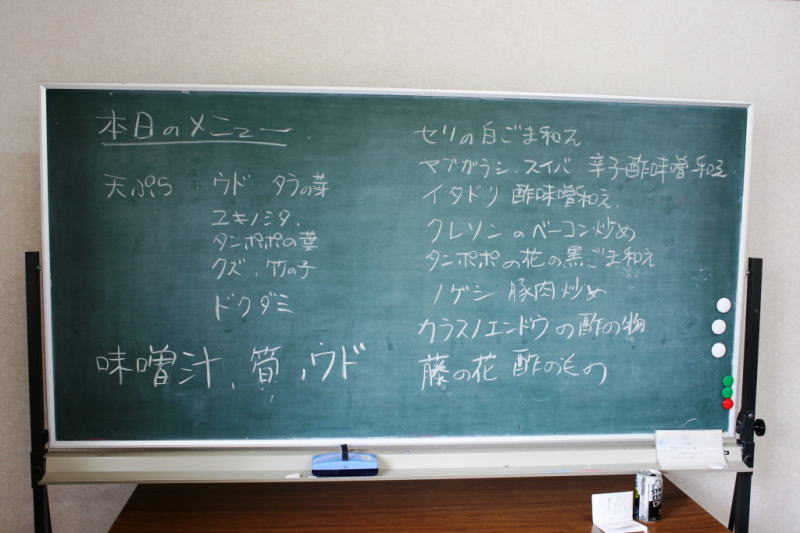 本日のメニュー
天ぷら ウド タラの芽
ユキノシタ.
タンポポの葉
クズ. 竹の子
ドクダミ
味噌汁、筍、ウド
セリの白ごま和え
ヤブガラシ. スイバ 辛子酢味噌和え
イタドリ 酢味噌和え.
クレソンのベーコン炒め
タンポポの花の黒ごま和え
ノゲシ 豚肉炒め
カラスノエンドウの酢の物
藤の花 酢のもの